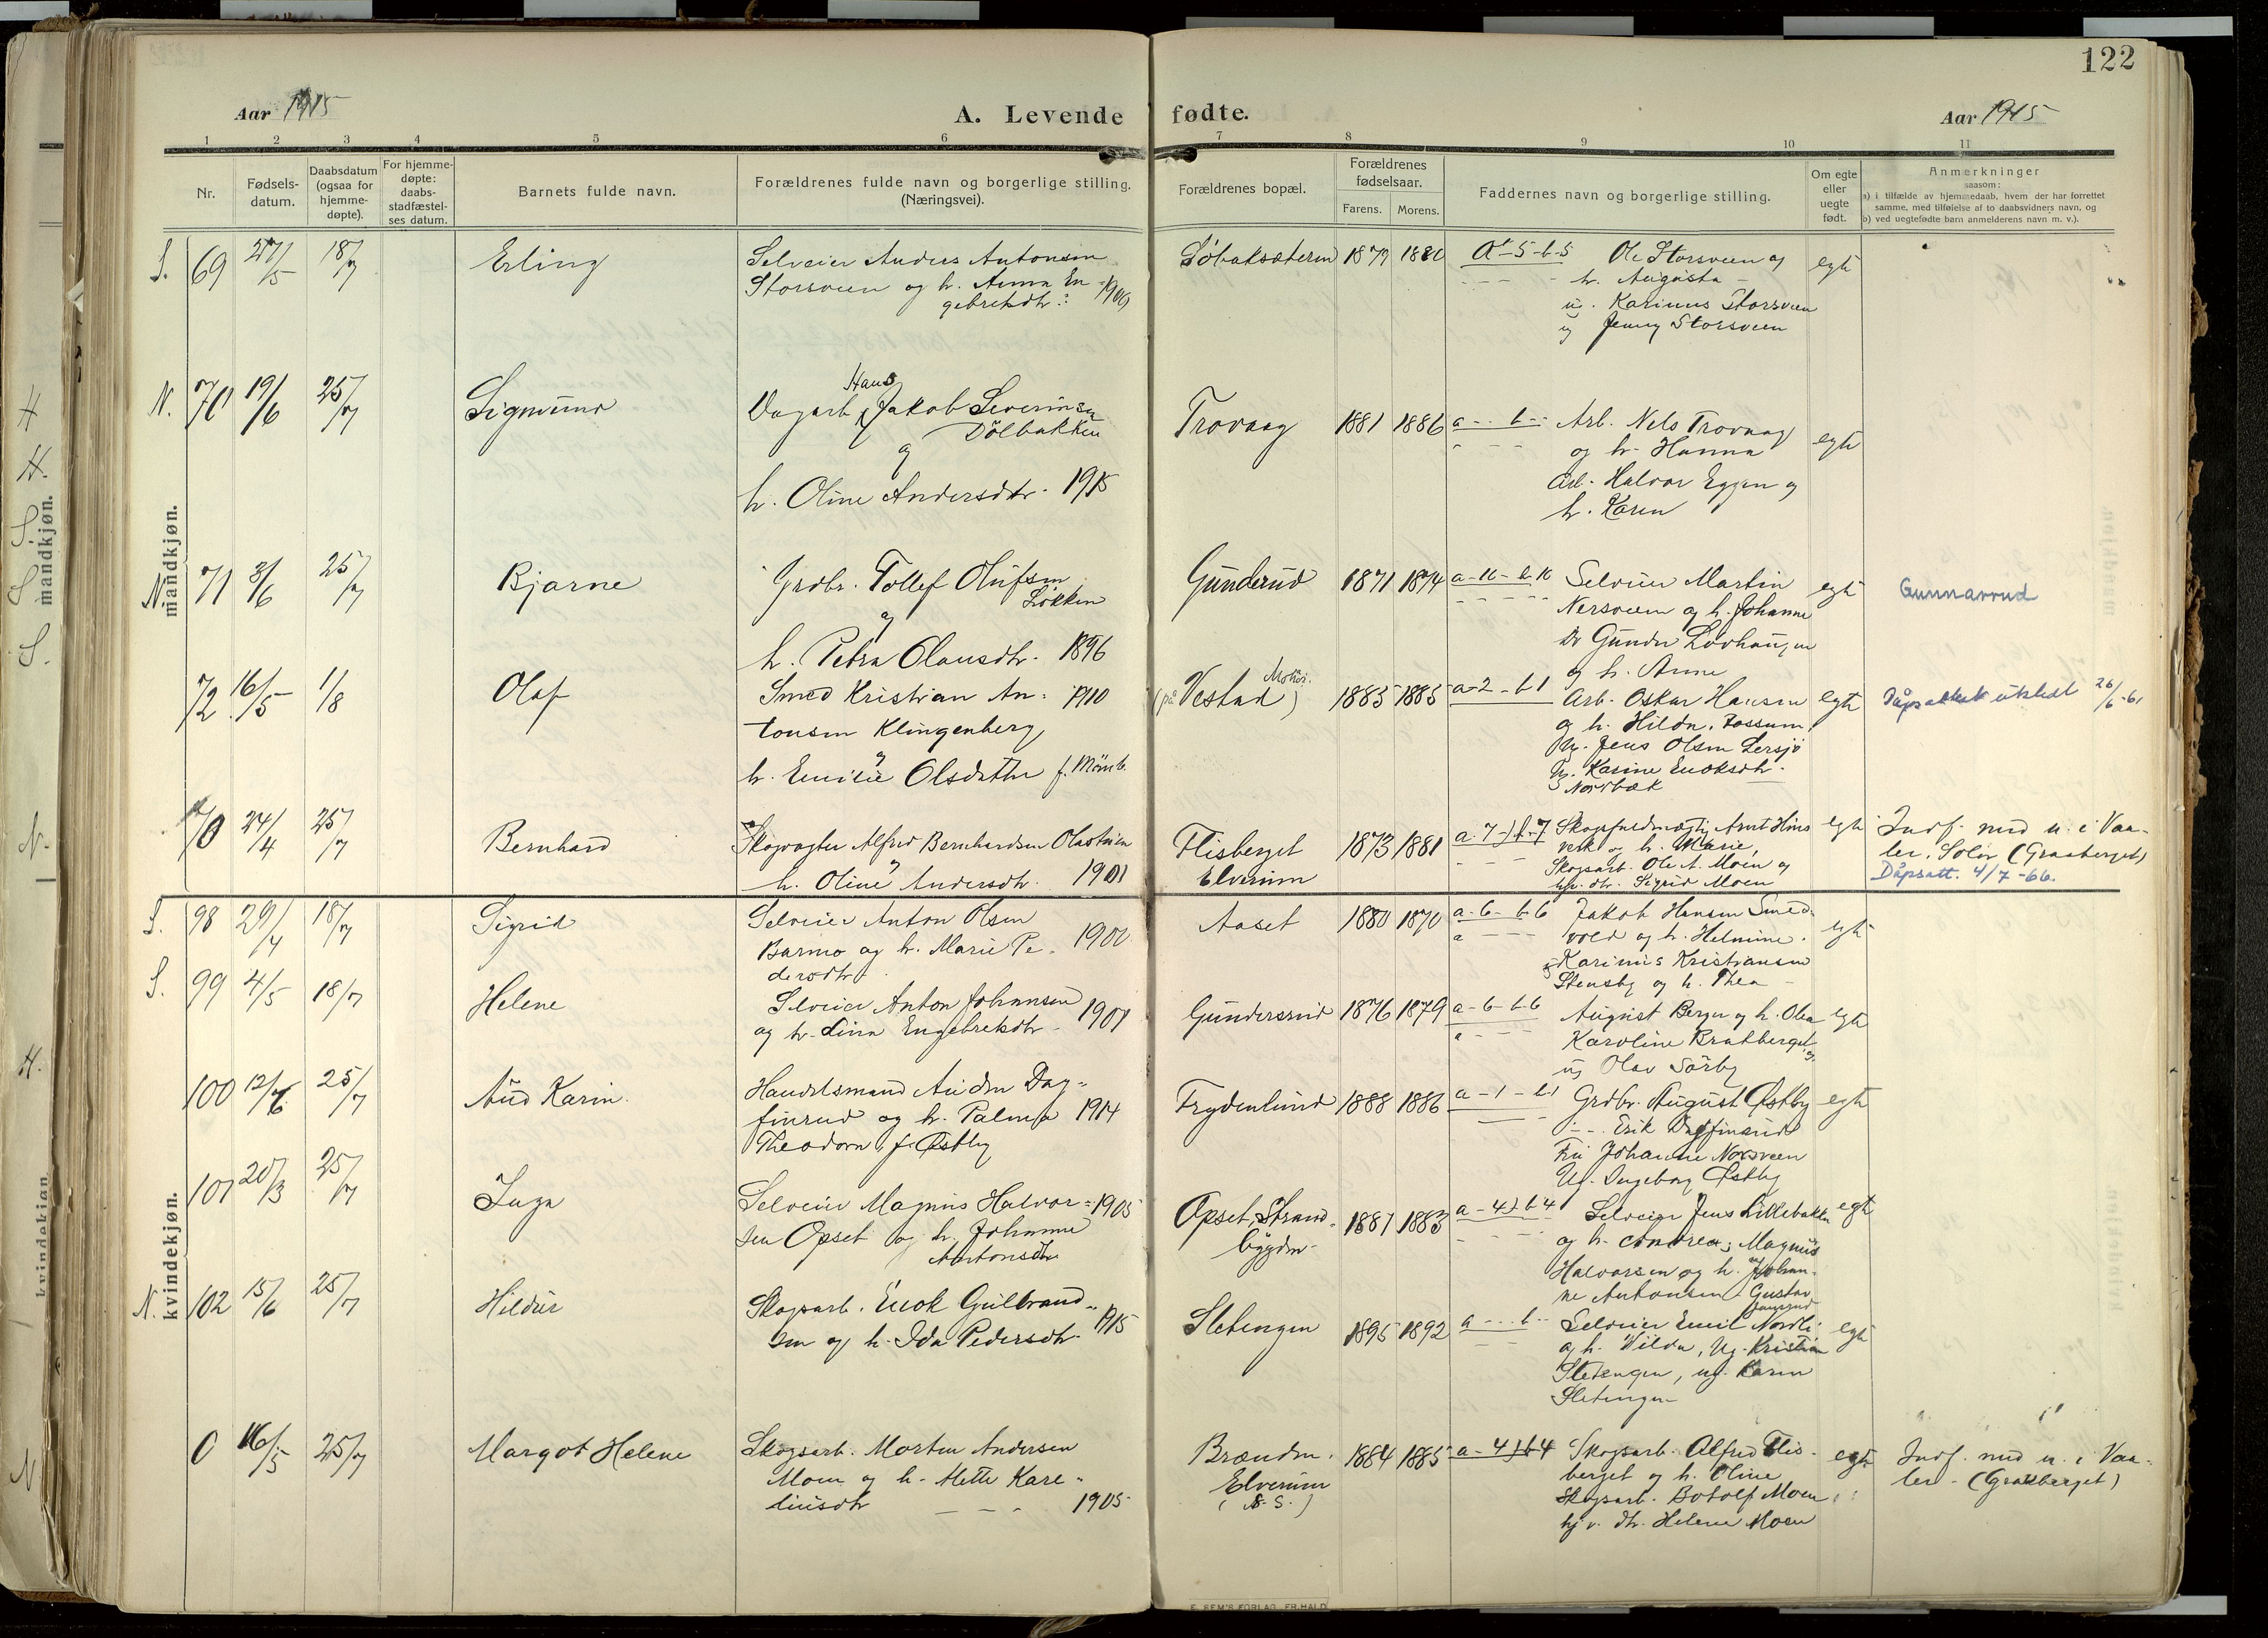 122
Aar 1915
A. Levende fødte.
Aar 1915
1 2 3 4 5 6 7 8 9 10 11
Nr.
Fødsels-
datum.
Daabsdatum
(ogsaa for
hjemme-
døpte).
For hjemme-
døpte:
daabs-
stadfæstel-
ses datum.
Barnets fulde navn.
Forældrenes fulde navn og borgerlige stilling.
(Næringsvei).
Forældrenes bopæl.
Forældrenes
fødselsaar.
Farens. Morens.
Faddernes navn og borgerlige stilling.
Om egte
eller
uegte
født.
Anmerkninger
saasom:
a) i tilfælde av hjemmedaab, hvem der har forrettet
samme, med tilføielse af to daabsvidners navn, og
b) ved uegtefødte barn anmelderens navn m. v.).
mandkjøn.
S. 69 27/5 18/7 Erling
Selveier Anders Antonsen
Storsveen og h. Anna En-
gebretsdtr. 1906
Löbaksæteren 1879 1880 a-5-b-5
Ole Storsveen og
h. Augusta
ug. Karinus Storsveen
ug Jenny Storsveen
egte
N. 70 19/6 25/7 Sigmund
Hans
Dagarb. Jakob Severinsen
Dölbakken
og
h. Oline Andersdtr. 1915
Trovaag 1881 1886 a-- b--
Arb. Nels Trovaag
og h. Hanna
Arb. Halvor Eggen og
h. Karen
egte
N. 71 3/6 25/7 Bjarne
Grdbr. Tollef Olufsen
Løkken
og
h. Petra Olausdtr. 1896
Gunderud 1871 1874
Selveier Martin
Nersveen og h. Johanne
Do Gunder Lovhaugen
og h. Anne
egte
Gunnarrud
72 16/5 1/8 Olaf
Smed Kristian An- 1910
tonsen Klingenberg
og
h. Emilie Olsdatter f.
(på Vestad) 1885 1885 a-2-b-1
Arb. Oskar Hansen
og h. Hilda, Fossum,
Ug. Jens Olsen Lersjö
Ug. Karine Enoksdtr.
Nordbæk
egte
Dåpsattest utstedt 26/6-61
70 24/4 25/7 Bernhard
Skogvogter Alfred Bernhardsen
og
h. Oline Andersdtr. 1901
Flisberget
Elverum
1873 1881 a-7-)b-7
Skogfuldmægtig Arnt Hans
og h. Marie,
Skogsarb. Ole A. Moen og
hj.v. dtr. Sigrid Moen
egte
Indf. med n. i Vaa-
ler, Solör (Graaberget)
Dåpsatt. 4/7-66.
kvindekjøn.
S. 98 29/4 18/7 Sigrid
Selveier Anton Olsen
Barmo og h. Marie Pe- 1900
dersdtr.
Aaset 1880 1870 a-6-b-6
Jakob Hansen Smed-
vold og h. Helmine.
Karinus Kristiansen
Stensby og h. Thea
egte
S. 99 4/5 18/7 Helene
Selveier Anton Johansen
og h. Lina Engebretsdtr. 1901
Gundersrud 1876 1879 a-6-b-6
August Berger og h. Olea
Karoline Bratberget
ug Olav Sörby
egte
100 12/6 25/7 Aud Karin.
Handelsmand Auden Dag-
finrud og h. Palma 1914
Theodora f. Østby
Frydenlund 1888 1886 a-1-b-1
Grdbr. August Østby
-"- Erik Dagfinrud
Fru Johanne Norsveen
Ug. Ingeborg Østby
egte
101 20/3 25/7 Inga
Selveier Magnus Halvor- 1905
sen Opset og h. Johanne
Antonsdtr.
Opset, Strand-
bygden
1881 1883 a-4)b-4
Selveier Jens Lillebakken
og h. Andrea; Magnus
Halvorsen og h. Johan-
ne Antonsen. Gustav
egte
N. 102 15/6 25/7 Hildur
Skogsarb. Enok Gulbrand-
sen og h. Ida Pedersdtr. 1915
Sletengen 1895 1892 a--b--
Selveier Emil Nordli
og h. Vilda, Ug. Kristian
Sletengen, ug. Karen
Sletengen
egte
0 16/5 25/7 Margot Helene
Skogsarb. Morten Andersen
Moen og h. Mette Kare-
liusdtr. 1905
Brænden.
Elverum
1884 1885 a-4)b-4
Skogsarb. Alfred Flis-
berget og h. Oline
Skogsarb. Botolf Moen
hj.v. dtr. Helene Moen
egte
Indf. med n. i Vaa-
ler - (Graaberget)
E. SEM'S FORLAG, FR.HALD